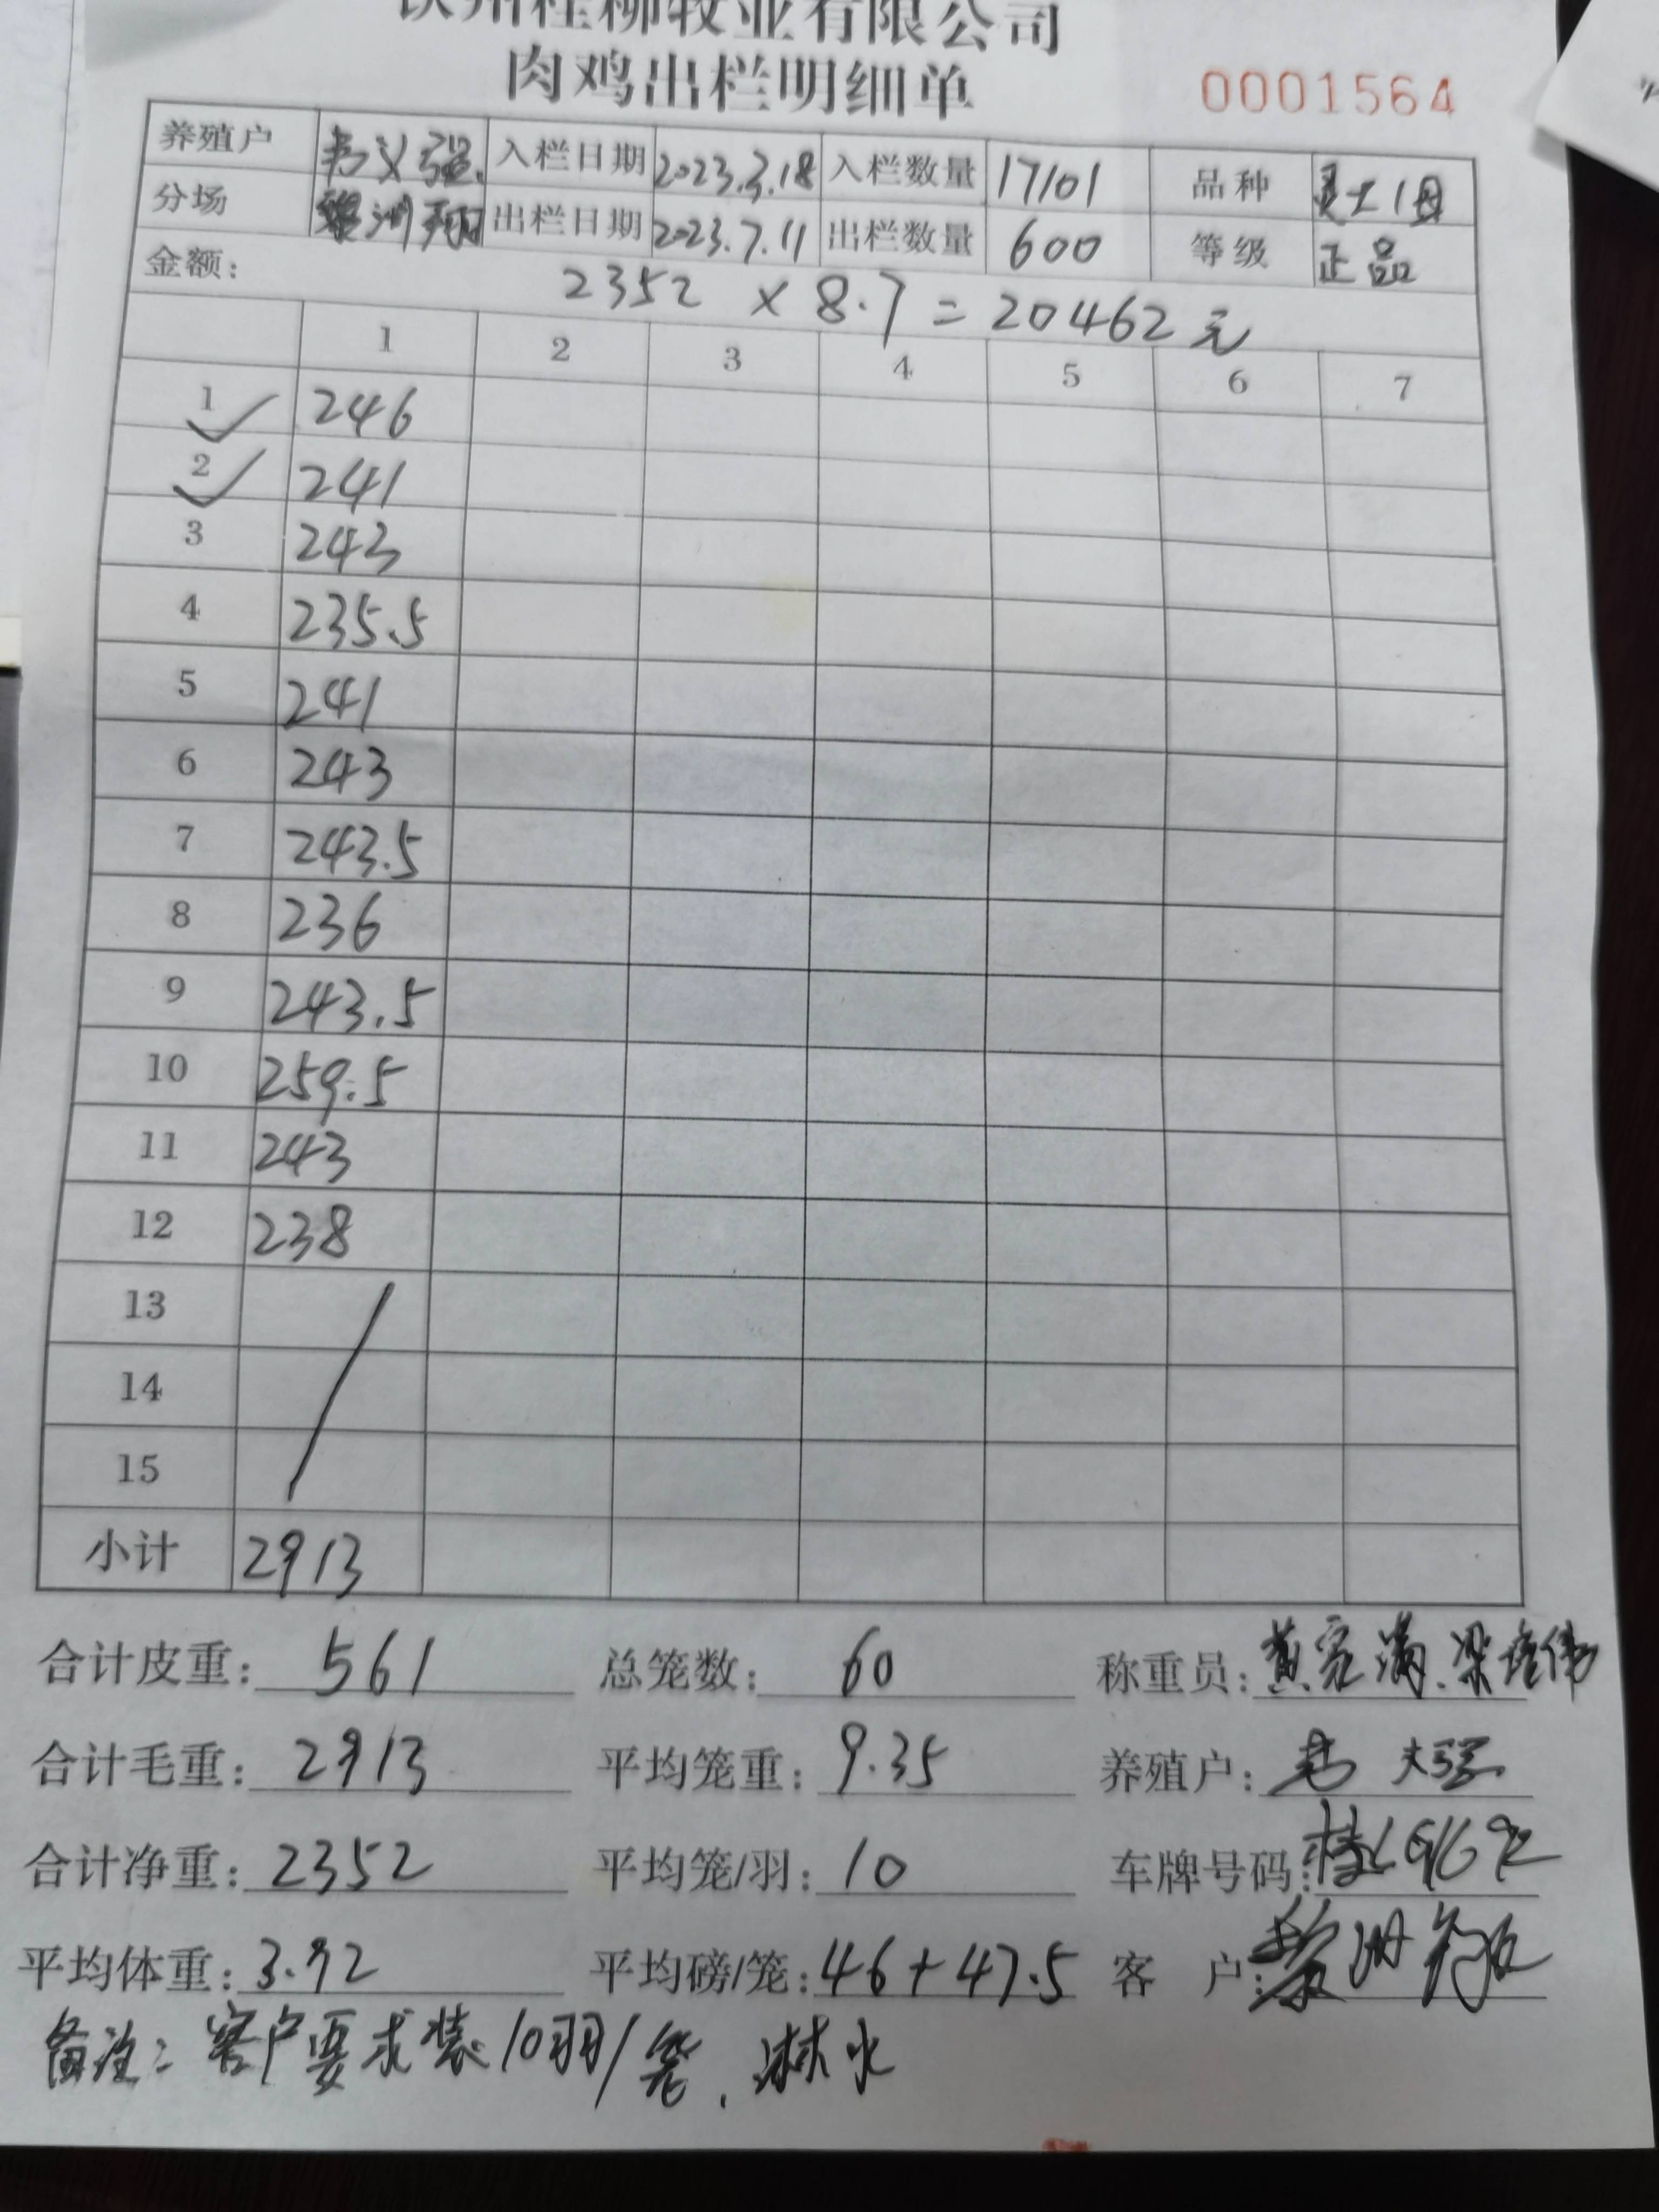 钦州桂柳牧业有限公司
肉鸡出栏明细单
0001564
养殖户 韦义强 入栏日期 2023.3.18 入栏数量 17101 品种 灵土1母
分场 黎洲翔 出栏日期 2023.7.11 出栏数量 600 等级 正品
金额: 2352 × 8.7 = 20462元
1 2 3 4 5 6 7
1 246
2 241
3 243
4 235.5
5 241
6 243
7 243.5
8 236
9 243.5
10 259.5
11 243
12 238
13
14
15
小计 2913
合计皮重: 561 总笼数: 60 称重员:
合计毛重: 2913 平均笼重: 9.35 养殖户: 韦
合计净重: 2352 平均笼/羽: 10 车牌号码:
平均体重: 3.92 平均磅/笼: 46+47.5 客 户: 黎洲
备注: 客户要求装10羽/笼, 淋水